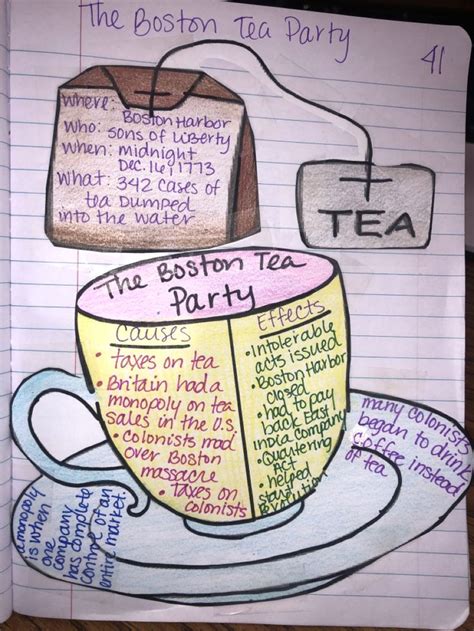 The Boston Tea Party
41
where:
Boston Harbor
who: sons of Liberty
when: midnight
Dec. 16, 1773
what: 342 cases of
tea Dumped
into the water
TEA
The Boston Tea
Party
Causes
• taxes on tea
• Britain had a
monopoly on tea
sales in the U.S.
• Colonists mad
over Boston
massacre
• taxes on
colonists
Effects
• Intolerable
acts issued
• Boston Harbor
closed
• had to pay
back East
India Company
• Quartering
Act
• helped
start
Revolution
many colonists
began to drink
coffee instead
of tea
a monopoly
is when
one
company
has complete
control of an
entire market.